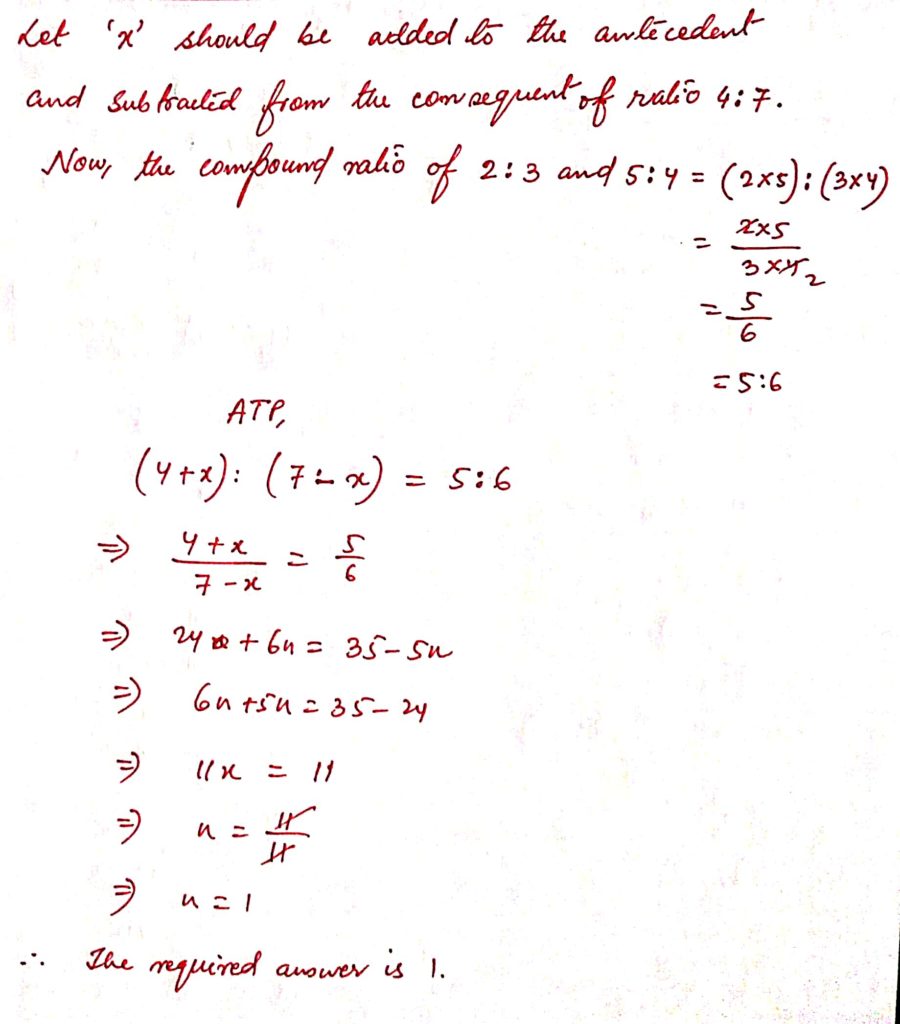 Let 'x' should be added to the antecedent
and subtracted from the consequent of ratio 4:7.
Now, the compound ratio of 2:3 and 5:4 = (2×5):(3×4)
= 2×5
3×4 2
= 5
6
= 5:6
ATP,
(4+x): (7-x) = 5:6
⇒ 4+x = 5
7-x 6
⇒ 24 + 6x = 35-5x
⇒ 6x+5x = 35-24
⇒ 11x = 11
⇒ x = 11
11
⇒ x = 1
∴ The required answer is 1.